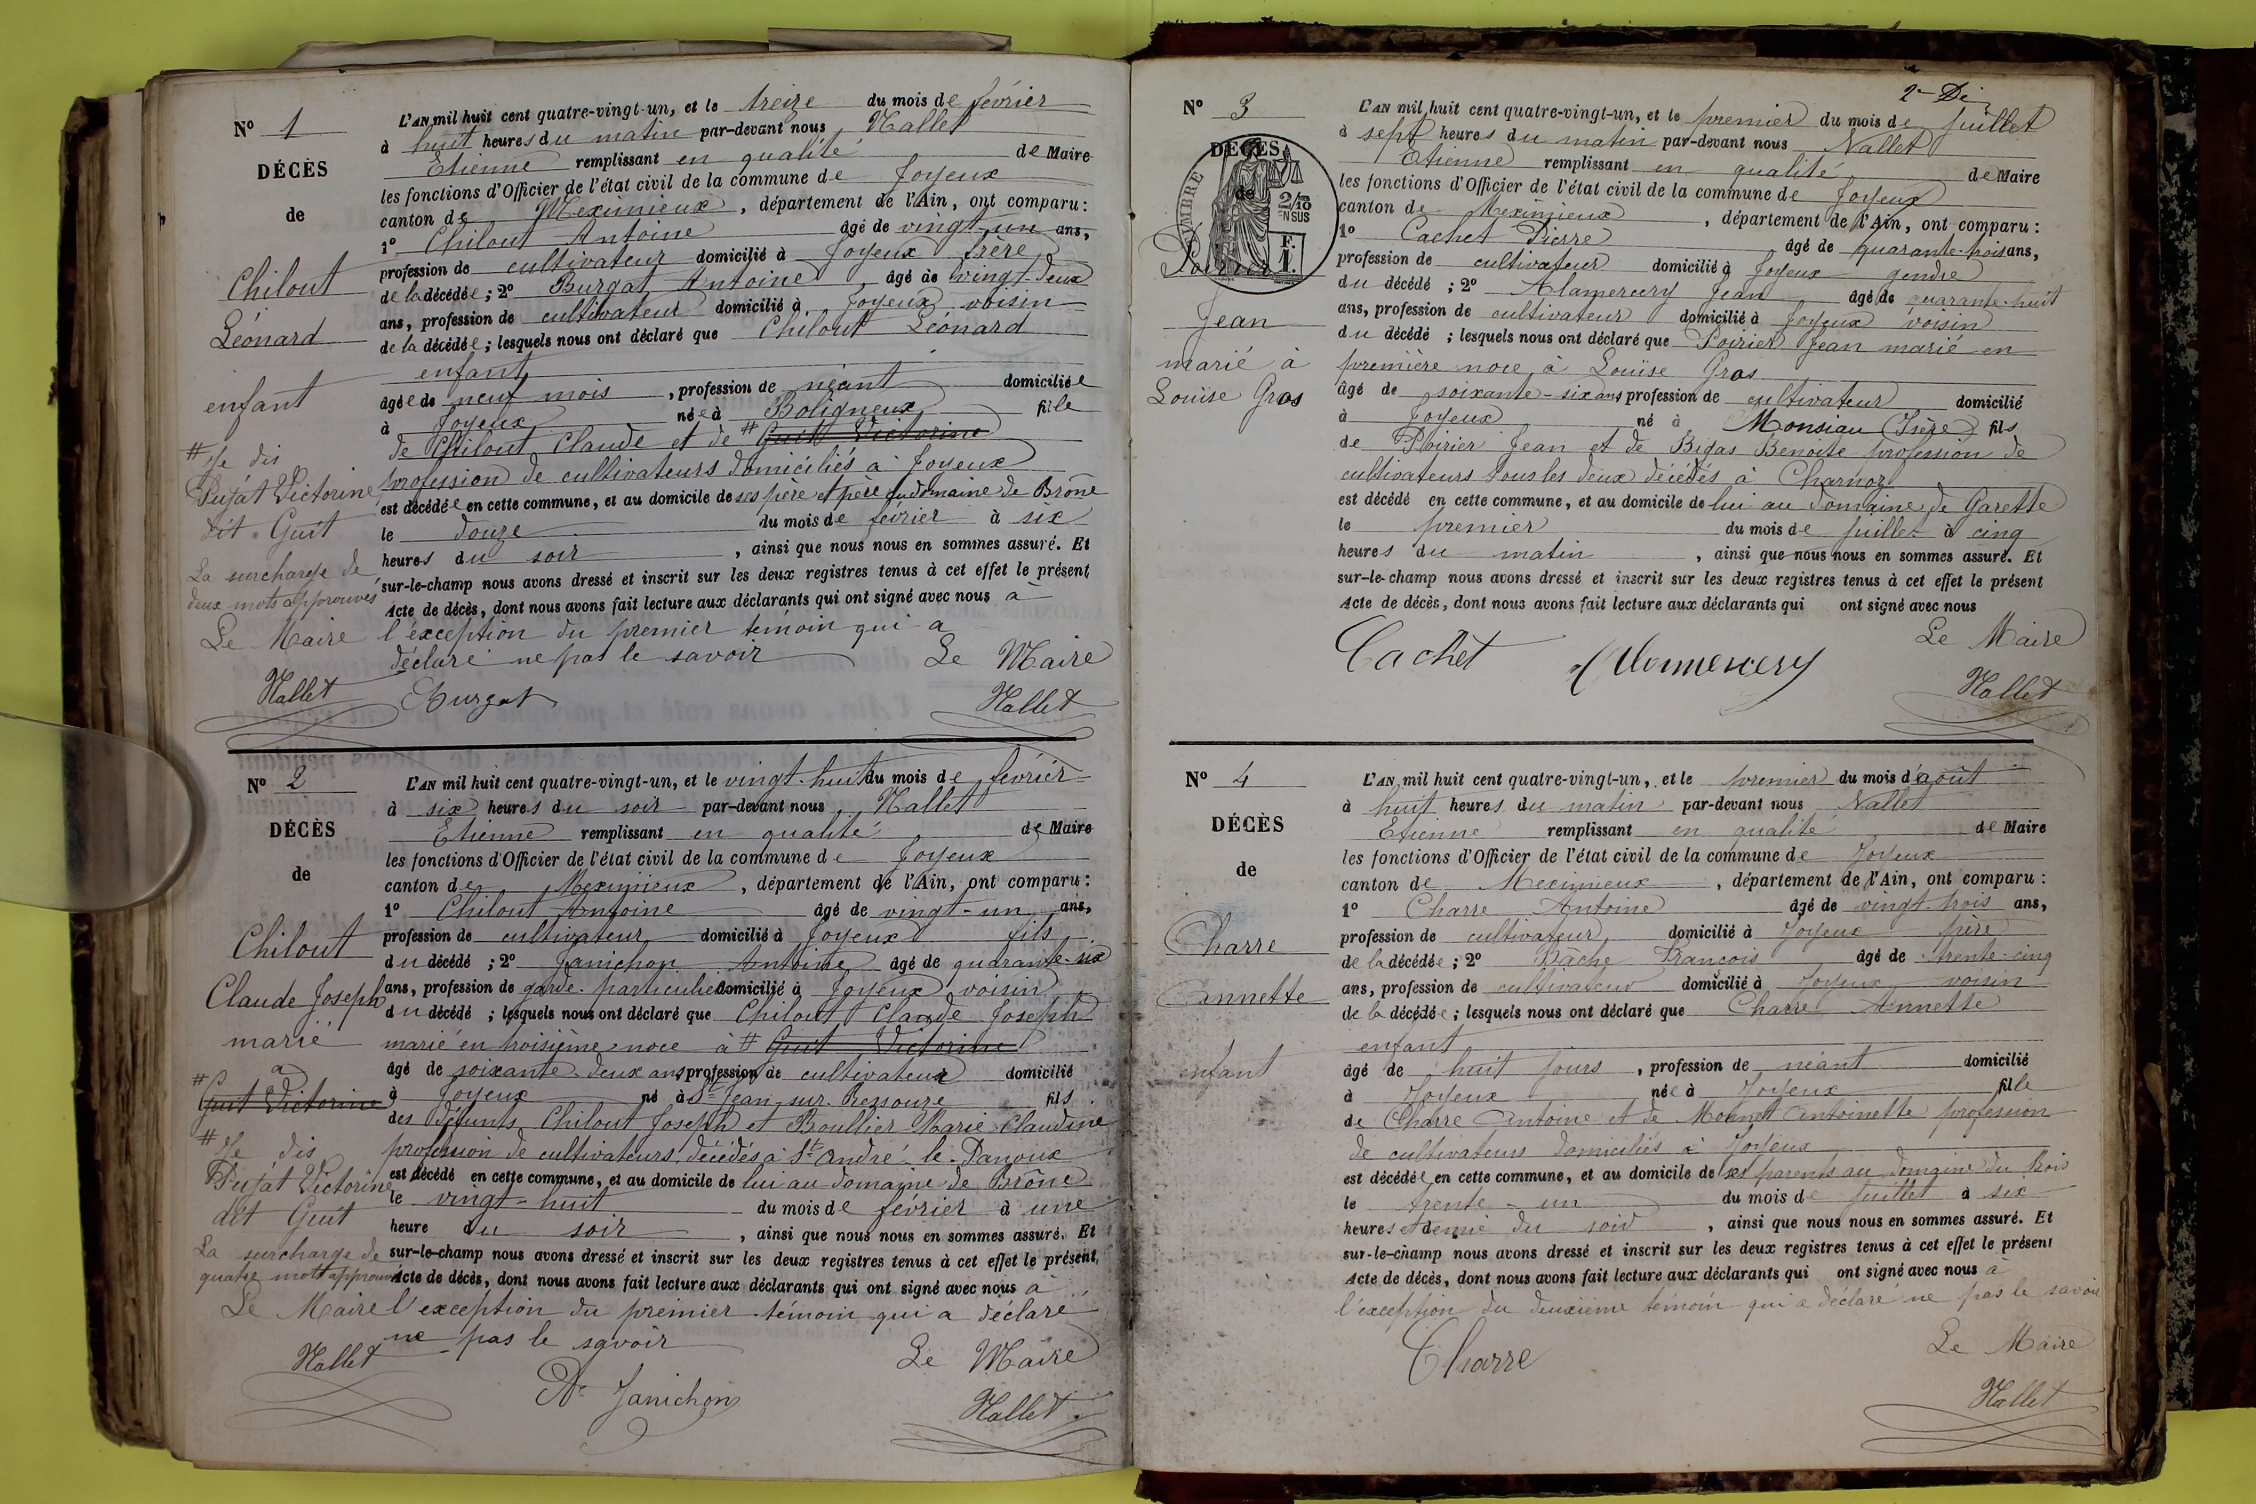 N° 1
DÉCÈS
de
Chilout
Léonard
enfant
# Je dis
Pujat Victorine
dit Guit
La surcharge de
deux mots approuvés
Le Maire
Nallet
L'AN mil huit cent quatre-vingt-un, et le treize du mois de février
à huit heures du matin par-devant nous Nallet
Etienne remplissant en qualité de Maire
les fonctions d'Officier de l'état civil de la commune de Joyeux
canton de Meximieux, département de l'Ain, ont comparu:
1° Chilout Antoine âgé de vingt-un ans,
profession de cultivateur domicilié à Joyeux frère
de la décédée; 2° Burgat Antoine âgé de vingt-deux
ans, profession de cultivateur domicilié à Joyeux voisin
de la décédée; lesquels nous ont déclaré que Chilout Léonard
enfant
âgée de neuf mois, profession de néant domiciliée
à Joyeux née à Boligneux fille
de Chilout Claude et de # Guit Victorine
profession de cultivateurs domiciliés à Joyeux
est décédée en cette commune, et au domicile de ses père et père au domaine de Brône
le douze du mois de février à six
heures du soir, ainsi que nous nous en sommes assuré. Et
sur-le-champ nous avons dressé et inscrit sur les deux registres tenus à cet effet le présent
Acte de décès, dont nous avons fait lecture aux déclarants qui ont signé avec nous à
l'exception du premier témoin qui a
déclaré ne pas le savoir Le Maire
Burgat Nallet
N° 2
DÉCÈS
de
Chilout
Claude Joseph
marié
à
# Guit Victorine
# Je dis
Pujat Victorine
dit Guit
La surcharge de
quatre mots approuvés
Le Maire
Nallet
L'AN mil huit cent quatre-vingt-un, et le vingt-huit du mois de février
à six heures du soir par-devant nous Nallet
Etienne remplissant en qualité de Maire
les fonctions d'Officier de l'état civil de la commune de Joyeux
canton de Meximieux, département de l'Ain, ont comparu:
1° Chilout Antoine âgé de vingt-un ans,
profession de cultivateur domicilié à Joyeux fils
du décédé; 2° Janichon Antoine âgé de quarante-six
ans, profession de garde-particulier domicilié à Joyeux voisin
du décédé; lesquels nous ont déclaré que Chilout Claude Joseph
marié en troisième noce à # Guit Victorine
âgé de soixante-deux ans profession de cultivateur domicilié
à Joyeux né à St Jean-sur-Ressouze fils
des défunts Chilout Joseph et Boullier Marie Claudine
profession de cultivateurs décédés à St André-le-Panoux
est décédé en cette commune, et au domicile de lui au domaine de Brône
le vingt-huit du mois de février à une
heure du soir, ainsi que nous nous en sommes assuré. Et
sur-le-champ nous avons dressé et inscrit sur les deux registres tenus à cet effet le présent,
Acte de décès, dont nous avons fait lecture aux déclarants qui ont signé avec nous à
l'exception du premier témoin qui a déclaré
ne pas le savoir Le Maire
Ne Janichon Nallet
N° 3
DÉCÈS
de
TIMBRE
2/10
EN SUS
F.
1.
Poirier
Jean
marié à
Louise Gros
2e
L'AN mil huit cent quatre-vingt-un, et le premier du mois de juillet
à sept heures du matin par-devant nous Nallet
Etienne remplissant en qualité de Maire
les fonctions d'Officier de l'état civil de la commune de Joyeux
canton de Meximieux, département de l'Ain, ont comparu:
1° Cachet Pierre âgé de quarante-trois ans,
profession de cultivateur domicilié à Joyeux gendre
du décédé; 2° Alamercery Jean âgé de quarante-huit
ans, profession de cultivateur domicilié à Joyeux voisin
du décédé; lesquels nous ont déclaré que Poirier Jean marié en
première noce à Louise Gros
âgé de soixante-six ans profession de cultivateur domicilié
à Joyeux né à Monsiau (Isère) fils
de Poirier Jean et de Bigas Benoite profession de
cultivateurs tous les deux décédés à Charnoz
est décédé en cette commune, et au domicile de lui au domaine de Garette
le premier du mois de juillet à cinq
heures du matin, ainsi que nous nous en sommes assuré. Et
sur-le-champ nous avons dressé et inscrit sur les deux registres tenus à cet effet le présent
Acte de décès, dont nous avons fait lecture aux déclarants qui ont signé avec nous
Le Maire
Cachet Alamercery
Nallet
N° 4
DÉCÈS
de
Charre
Annette
enfant
L'AN mil huit cent quatre-vingt-un, et le premier du mois d'août
à huit heures du matin par-devant nous Nallet
Etienne remplissant en qualité de Maire
les fonctions d'Officier de l'état civil de la commune de Joyeux
canton de Meximieux, département de l'Ain, ont comparu:
1° Charre Antoine âgé de vingt-trois ans,
profession de cultivateur domicilié à Joyeux père
de la décédée; 2° Bâche François âgé de trente-cinq
ans, profession de cultivateur domicilié à Joyeux voisin
de la décédée; lesquels nous ont déclaré que Charre Annette
enfant
âgé de huit jours, profession de néant domicilié
à Joyeux née à Joyeux fille
de Charre Antoine et de Mounet Antoinette profession
de cultivateurs domiciliés à Joyeux
est décédée en cette commune, et au domicile de ses parents au domaine du Trois
le trente-un du mois de juillet à six
heures et demie du soir, ainsi que nous nous en sommes assuré. Et
sur-le-champ nous avons dressé et inscrit sur les deux registres tenus à cet effet le présent
Acte de décès, dont nous avons fait lecture aux déclarants qui ont signé avec nous à
l'exception du deuxième témoin qui a déclaré ne pas le savoir
Le Maire
Charre
Nallet